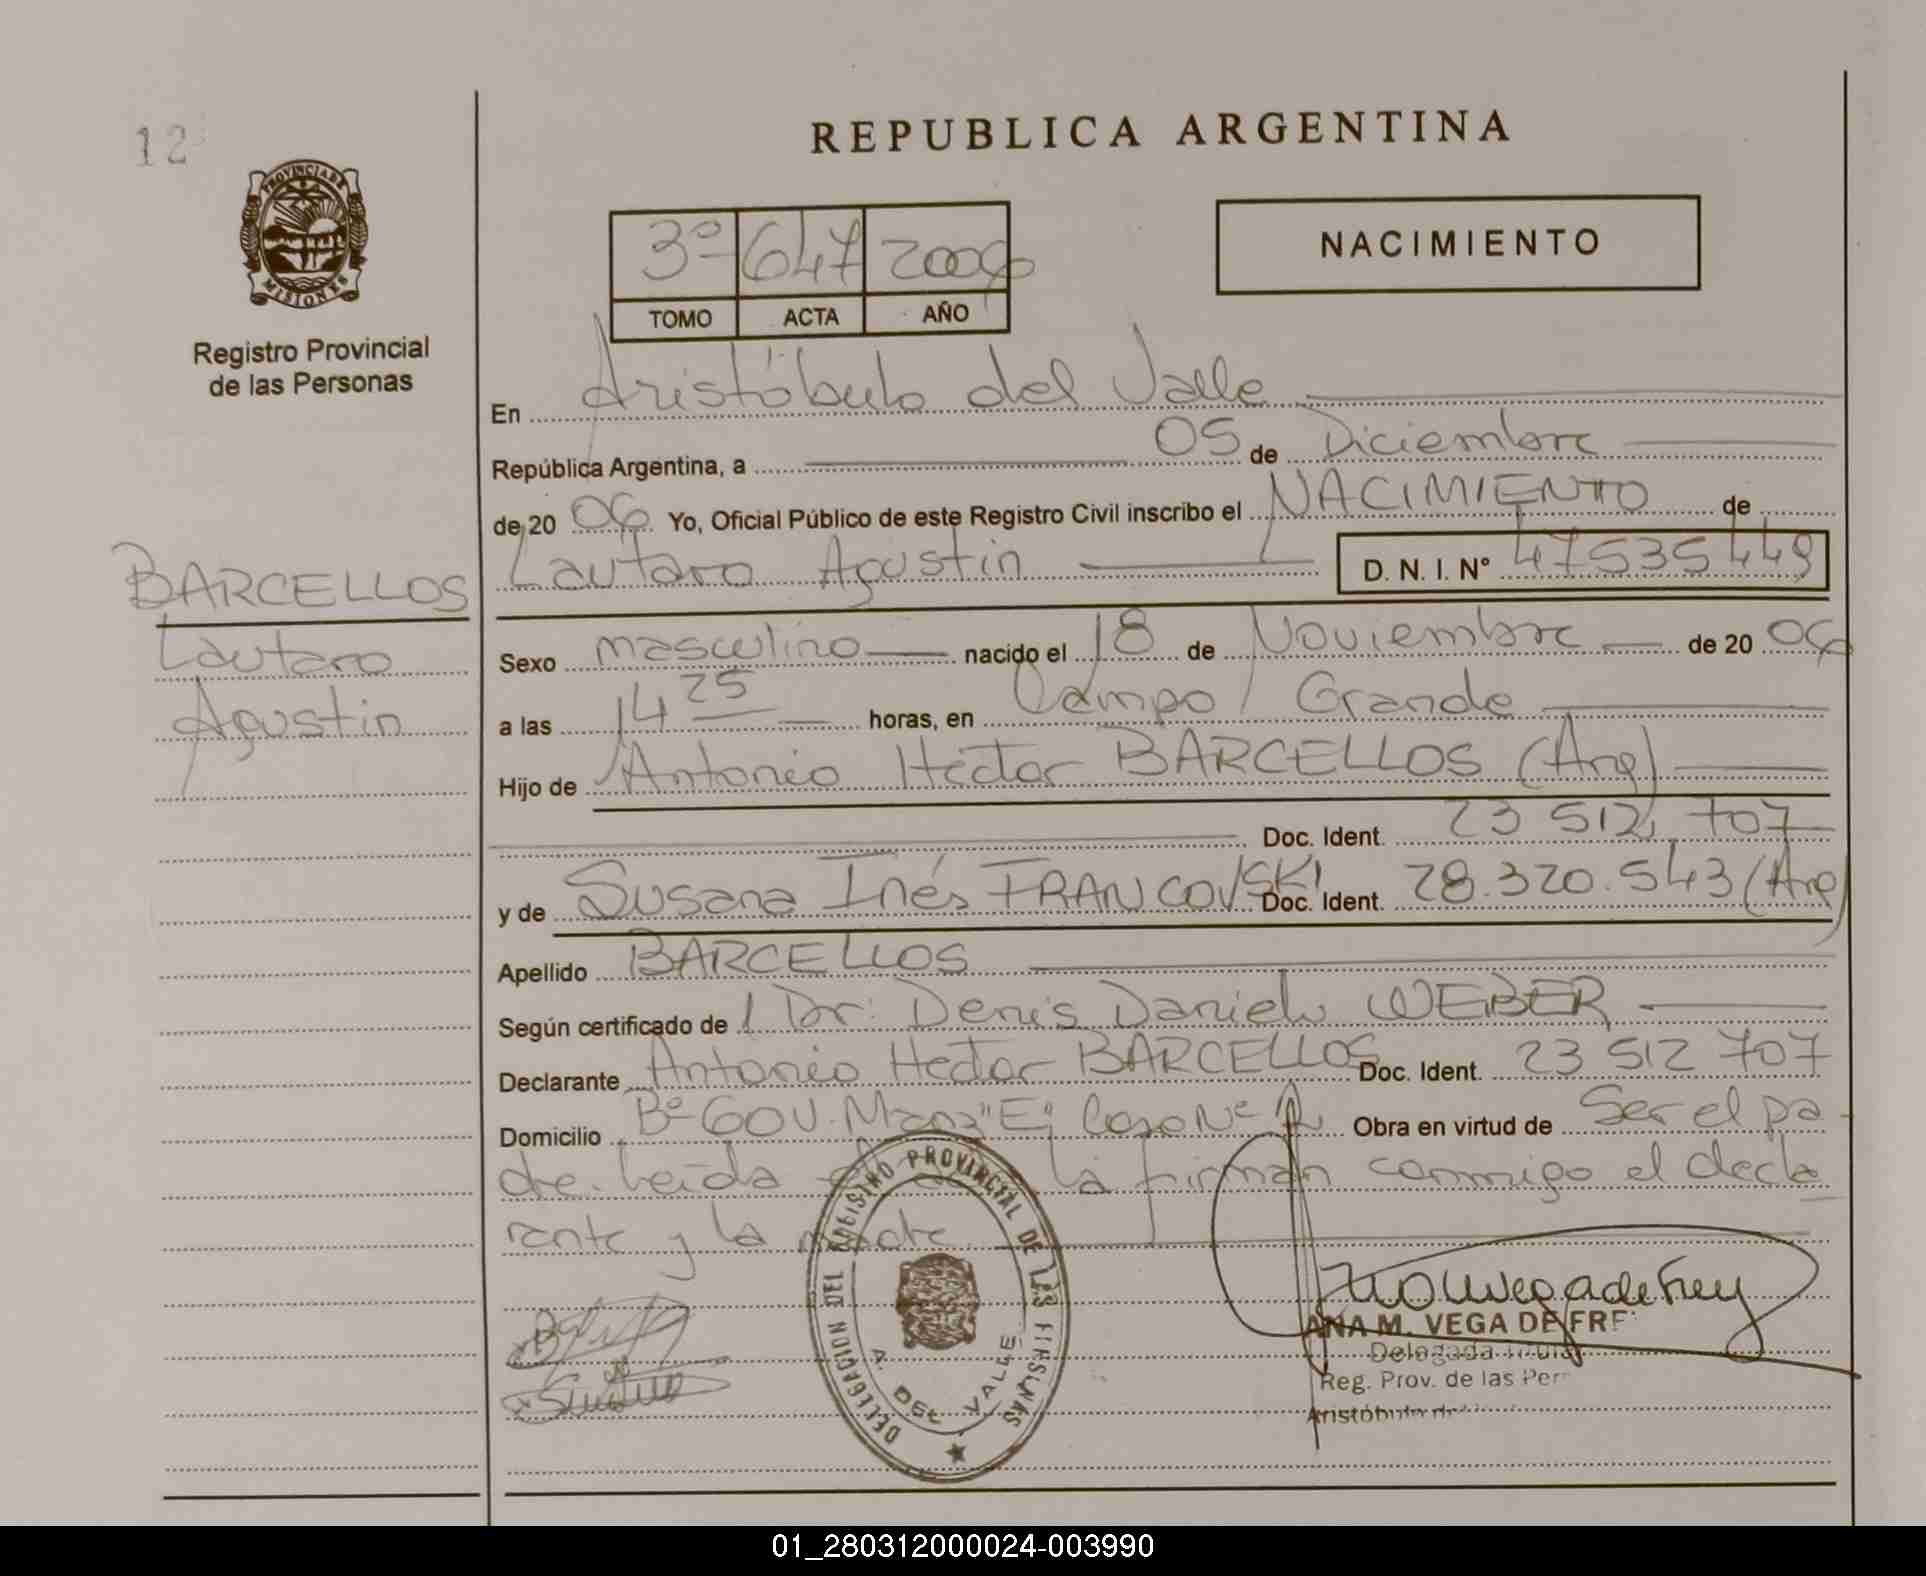 12
REPUBLICA ARGENTINA
PROVINCIA DE
MISIONES
Registro Provincial
de las Personas
3º 647 2006
TOMO ACTA AÑO
NACIMIENTO
En Aristóbulo del Valle
República Argentina, a 05 de Diciembre
de 20 06 Yo, Oficial Público de este Registro Civil inscribo el NACIMIENTO de
Lautaro Agustin D. N. I. Nº 47535449
BARCELLOS
Lautaro
Agustin
Sexo masculino nacido el 18 de Noviembre de 20 06
a las 14 25 horas, en Campo Grande
Hijo de Antonio Hector BARCELLOS (Arg)
Doc. Ident. 23 512 707
y de Susana Inés FRANCOVSKI Doc. Ident. 28.320.543 (Arg)
Apellido BARCELLOS
Según certificado de Dr: Denis Daniel WEBER
Declarante Antonio Hector BARCELLOS Doc. Ident. 23 512 707
Domicilio Bº GOV. Manz "E" Casa Nº Obra en virtud de Ser el pa-
dre. Leída el la firman conmigo el decla
rante y la madre
DELEGACION DEL REGISTRO PROVINCIAL DE LAS PERSONAS
A. DEL VALLE
ANA M. VEGA DE FRE
Delegada Titular
Reg. Prov. de las Per
Aristóbulo del
01_280312000024-003990